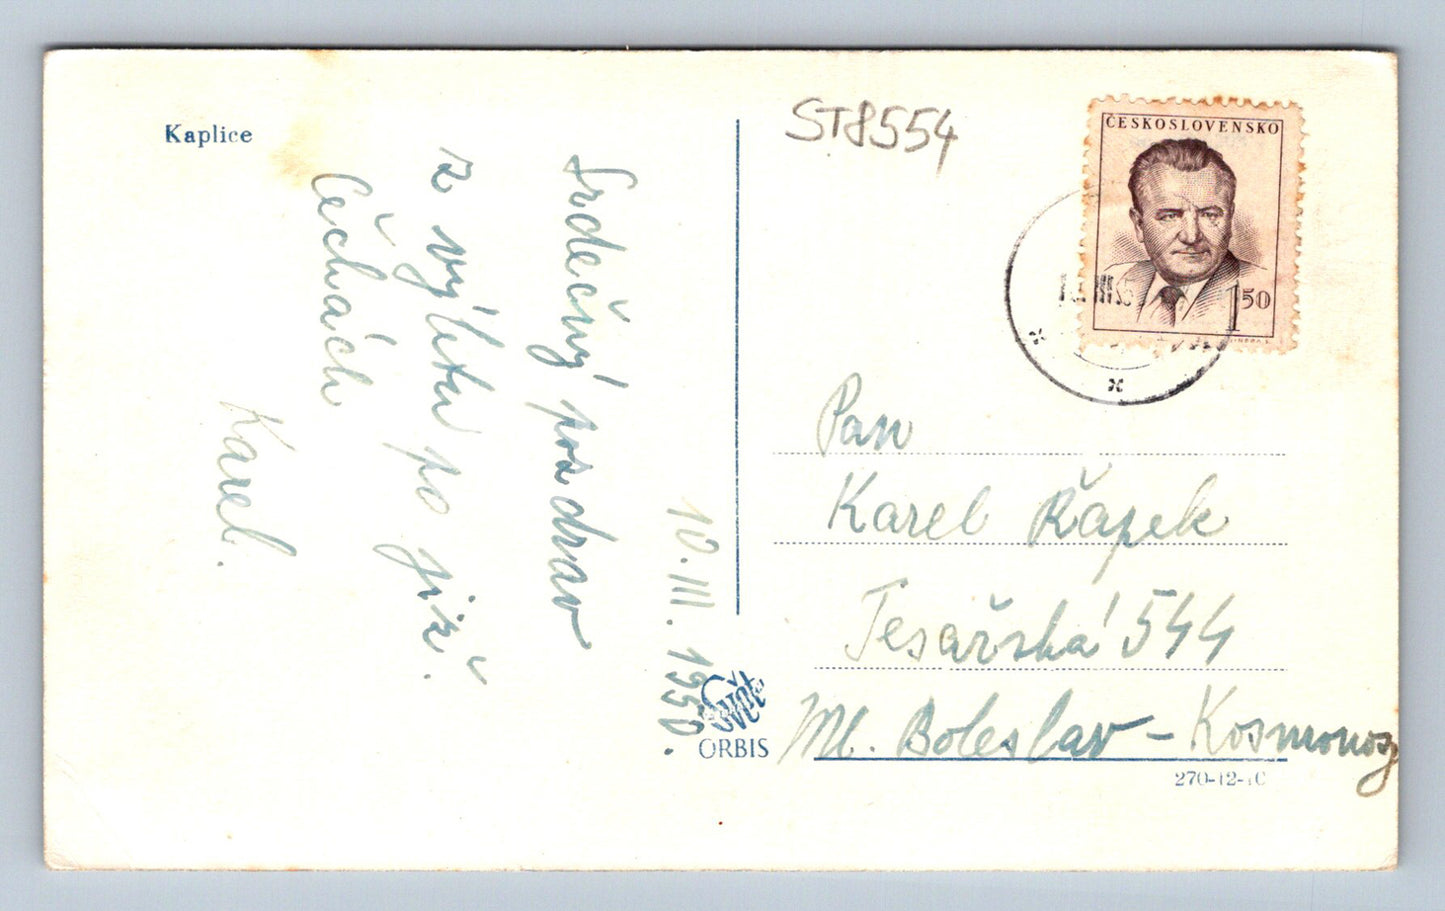 Kaplice
ST8554
ČESKOSLOVENSKO
1.50
10.III.1950.
Srdečný pozdrav
z výletu po již.
Čechách
Karel.
Pan
Karel Řápek
Tesařská 544
Ml. Boleslav - Kosmonosy
ORBIS
270-12-